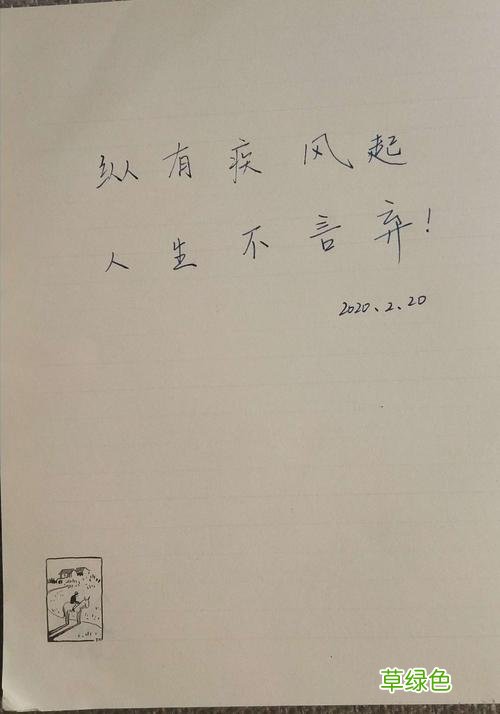 纵有疾风起
人生不言弃!
2020、2、20
草绿色